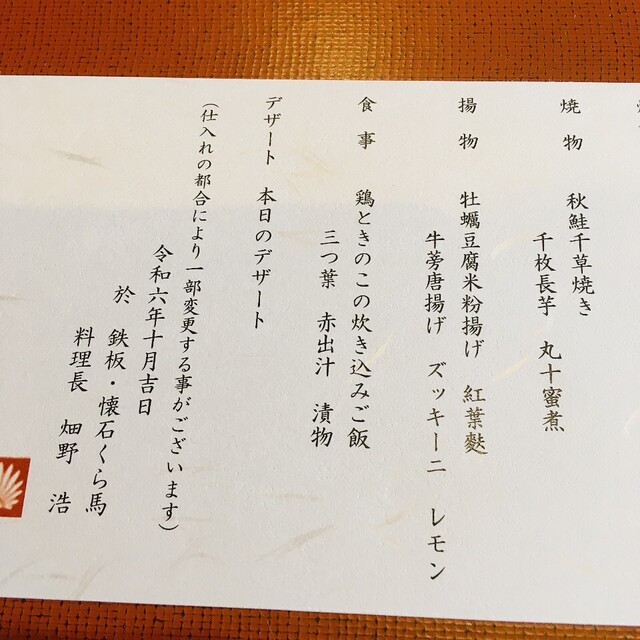 焼物　秋鮭千草焼き
千枚長芋　丸十蜜煮
揚物　牡蠣豆腐米粉揚げ　紅葉麩
牛蒡唐揚げ　ズッキーニ　レモン
食事　鶏ときのこの炊き込みご飯
三つ葉　赤出汁　漬物
デザート　本日のデザート
(仕入れの都合により一部変更する事がございます)
令和六年十月吉日
於　鉄板・懐石くら馬
料理長　畑野　浩